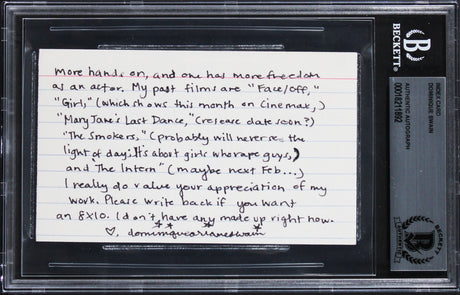 more hands on, and one has more freedom
as an actor. My past films are "Face/Off,"
"Girl," (which shows this month on Cinemax,)
"Mary Jane's Last Dance," (release date soon?)
"The Smokers," (probably will never see the
light of day. It's about girls who rape guys,)
and The Intern" (maybe next Feb...)
I really do value your appreciation of my
work. Please write back if you want
an 8x10. I don't have any made up right now.
♡, dominiquearianeswain
BECKETT
B
INDEX CARD
DOMINIQUE SWAIN
AUTHENTIC AUTOGRAPH
00016211892
B
BECKETT
AUTHENTIC